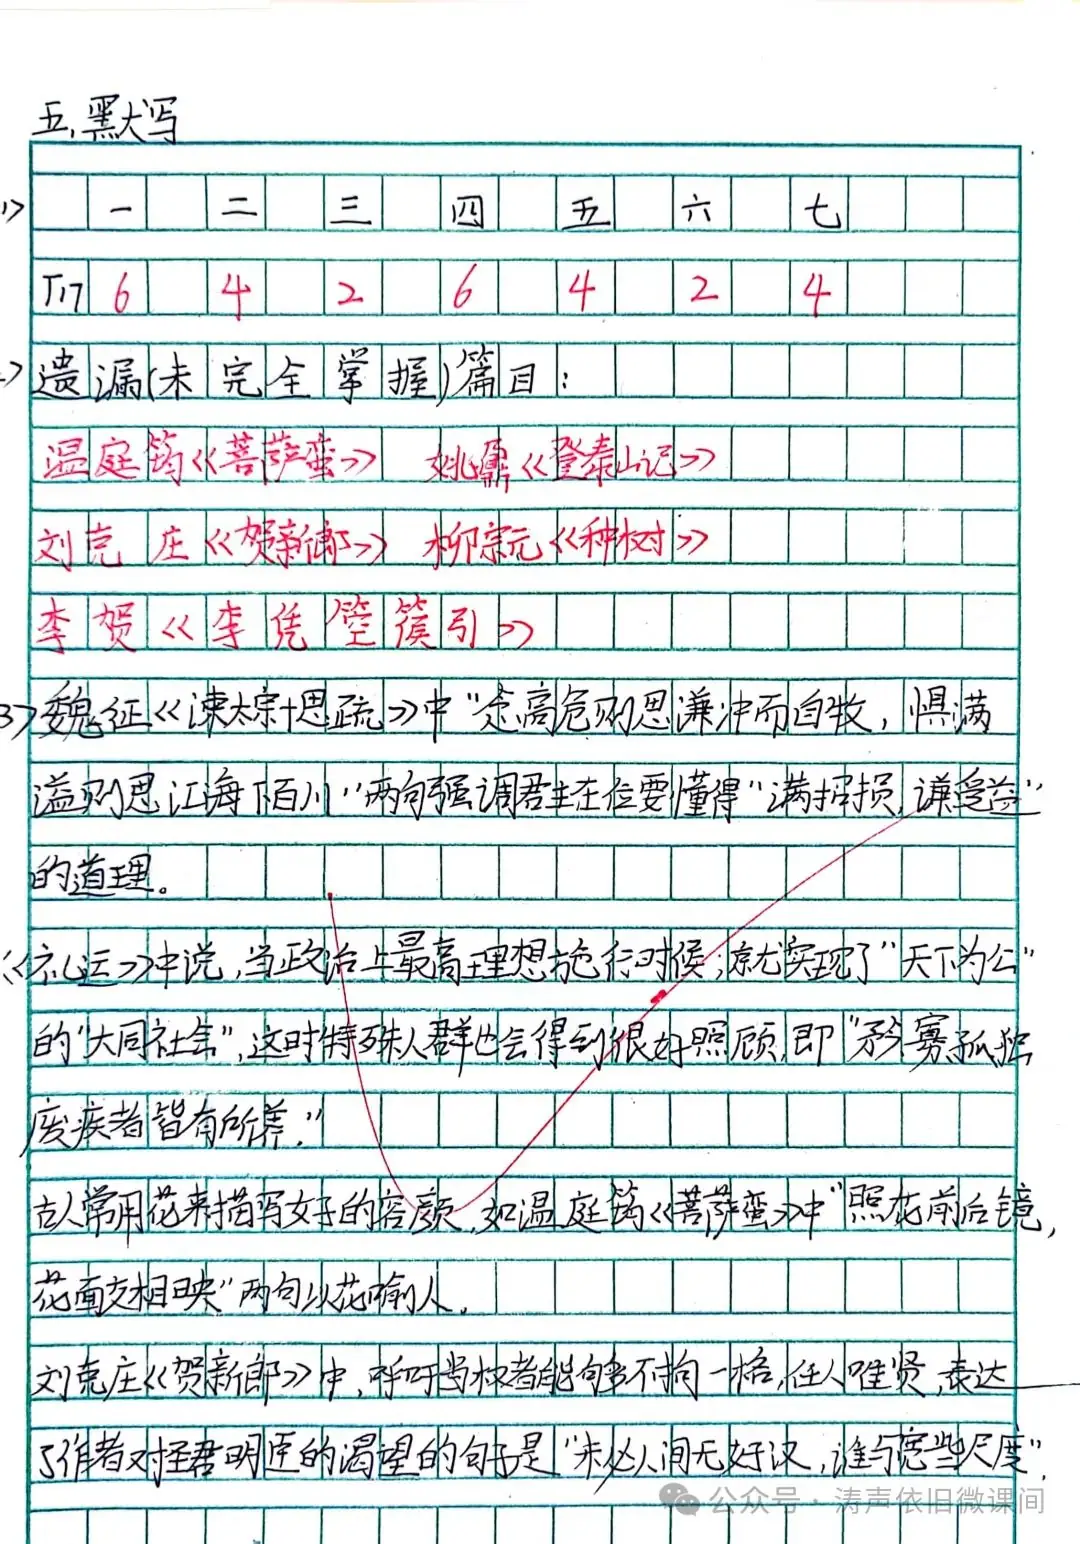 五、默写
1> 一 二 三 四 五 六 七
6 4 2 6 4 2 4
遗漏(未完全掌握)篇目:
温庭筠《菩萨蛮》 姚鼐《登泰山记》
刘克庄《贺新郎》 柳宗元《种树》
李贺《李凭箜篌引》
3>魏征《谏太宗十思疏》中"念高危则思谦冲而自牧,惧满
溢则思江海下百川"两句强调君主在位要懂得"满招损,谦受益"
的道理。
《礼运》中说,当政治上最高理想施行时候,就实现了"天下为公"
的"大同社会",这时特殊人群也会得到很好照顾,即"矜寡孤独
废疾者皆有所养."
古人常用花来描写女子的容颜,如温庭筠《菩萨蛮》中"照花前后镜,
花面交相映"两句以花喻人.
刘克庄《贺新郎》中,呼吁当权者能够不拘一格,任人唯贤,表达
了作者对圣君明臣的渴望的句子是"未必人间无好汉,谁与宽些尺度".
公众号·涛声依旧微课间